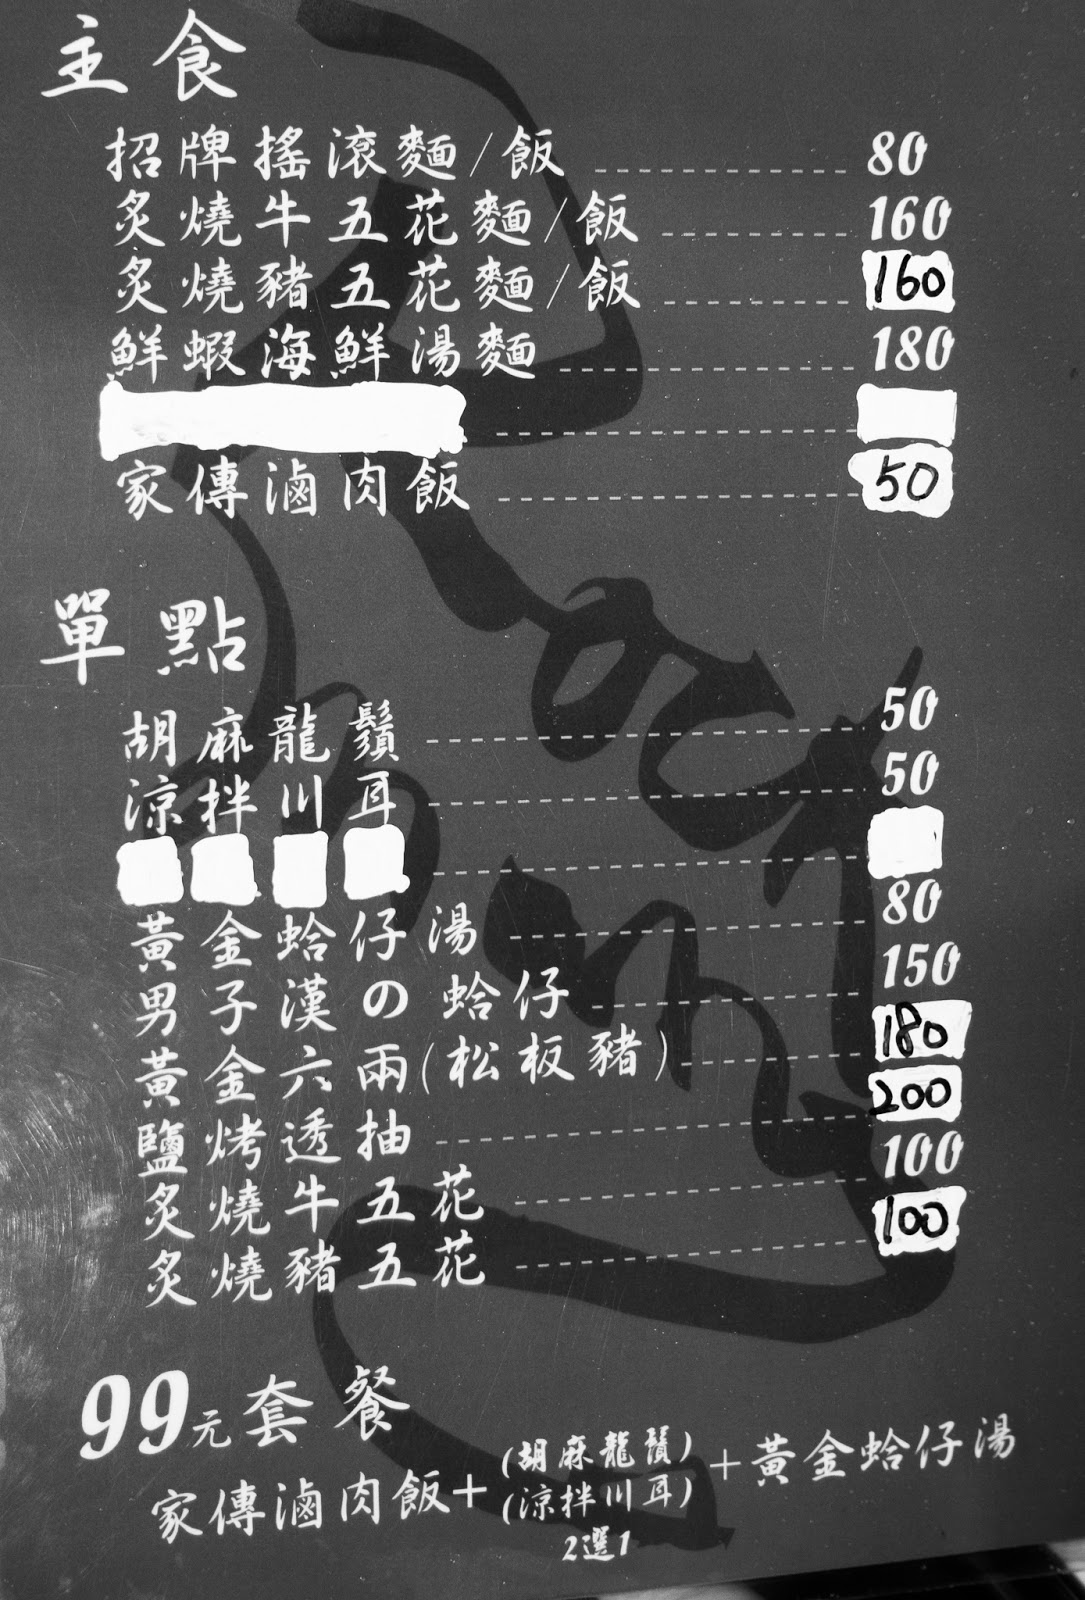 主食
招牌搖滾麵/飯 80
炙燒牛五花麵/飯 160
炙燒豬五花麵/飯 160
鮮蝦海鮮湯麵 180
家傳滷肉飯 50
單點
胡麻龍鬚 50
涼拌川耳 50
黃金蛤仔湯 80
男子漢の蛤仔 150
黃金六兩(松板豬) 180
鹽烤透抽 200
炙燒牛五花 100
炙燒豬五花 100
99元套餐
家傳滷肉飯+(胡麻龍鬚)(涼拌川耳)2選1+黃金蛤仔湯